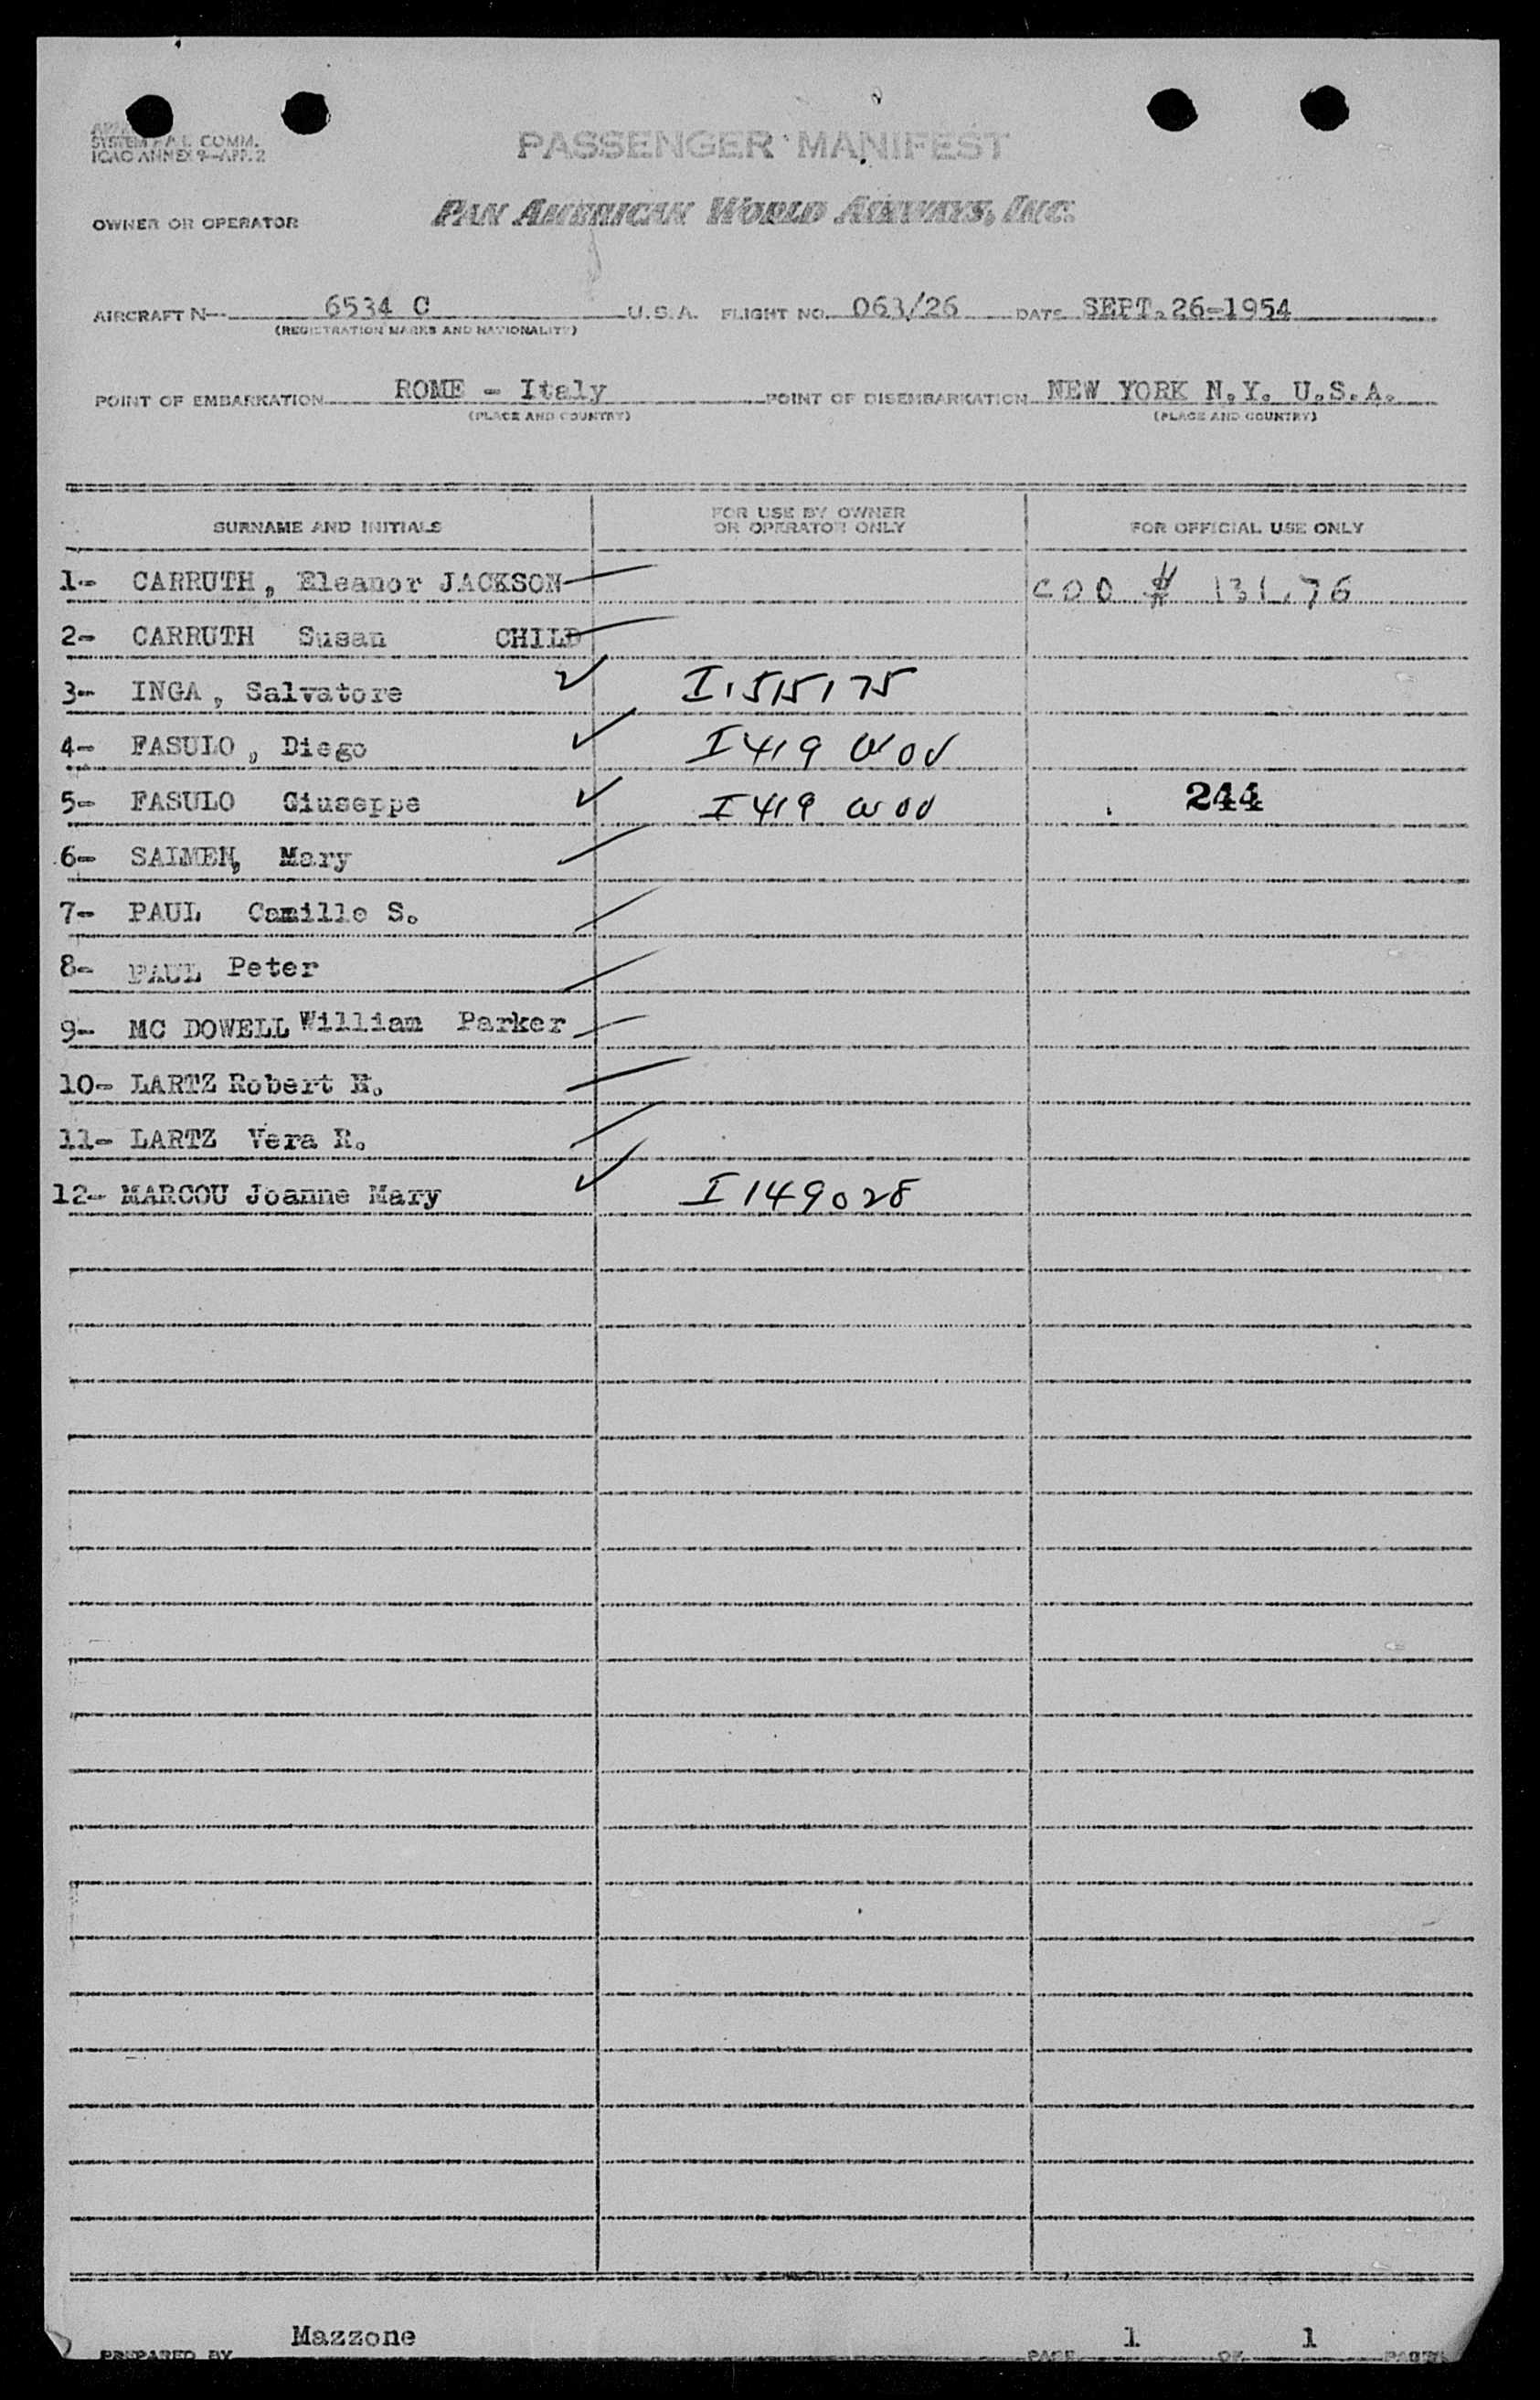 SYSTEM P.A.L. COMM.
ICAO ANNEX 9—APP. 2
PASSENGER MANIFEST
OWNER OR OPERATOR
PAN AMERICAN WORLD AIRWAYS, INC.
AIRCRAFT N— 6534 C U.S.A. FLIGHT NO. 063/26 DATE SEPT. 26-1954
(REGISTRATION MARKS AND NATIONALITY)
POINT OF EMBARKATION ROME - Italy POINT OF DISEMBARKATION NEW YORK N.Y. U.S.A.
(PLACE AND COUNTRY) (PLACE AND COUNTRY)
SURNAME AND INITIALS FOR USE BY OWNER OR OPERATOR ONLY FOR OFFICIAL USE ONLY
1- CARRUTH, Eleanor JACKSON COD $ 131.76
2- CARRUTH Susan CHILD
3- INGA, Salvatore I 1515175
4- FASULO, Diego I 419
5- FASULO Giuseppe I 419 244
6- SAIMEN, Mary
7- PAUL Camille S.
8- PAUL Peter
9- MC DOWELL William Parker
10- LARTZ Robert H.
11- LARTZ Vera R.
12- MARCOU Joanne Mary I 149028
Mazzone
PREPARED BY
PAGE 1 OF 1 PAGES